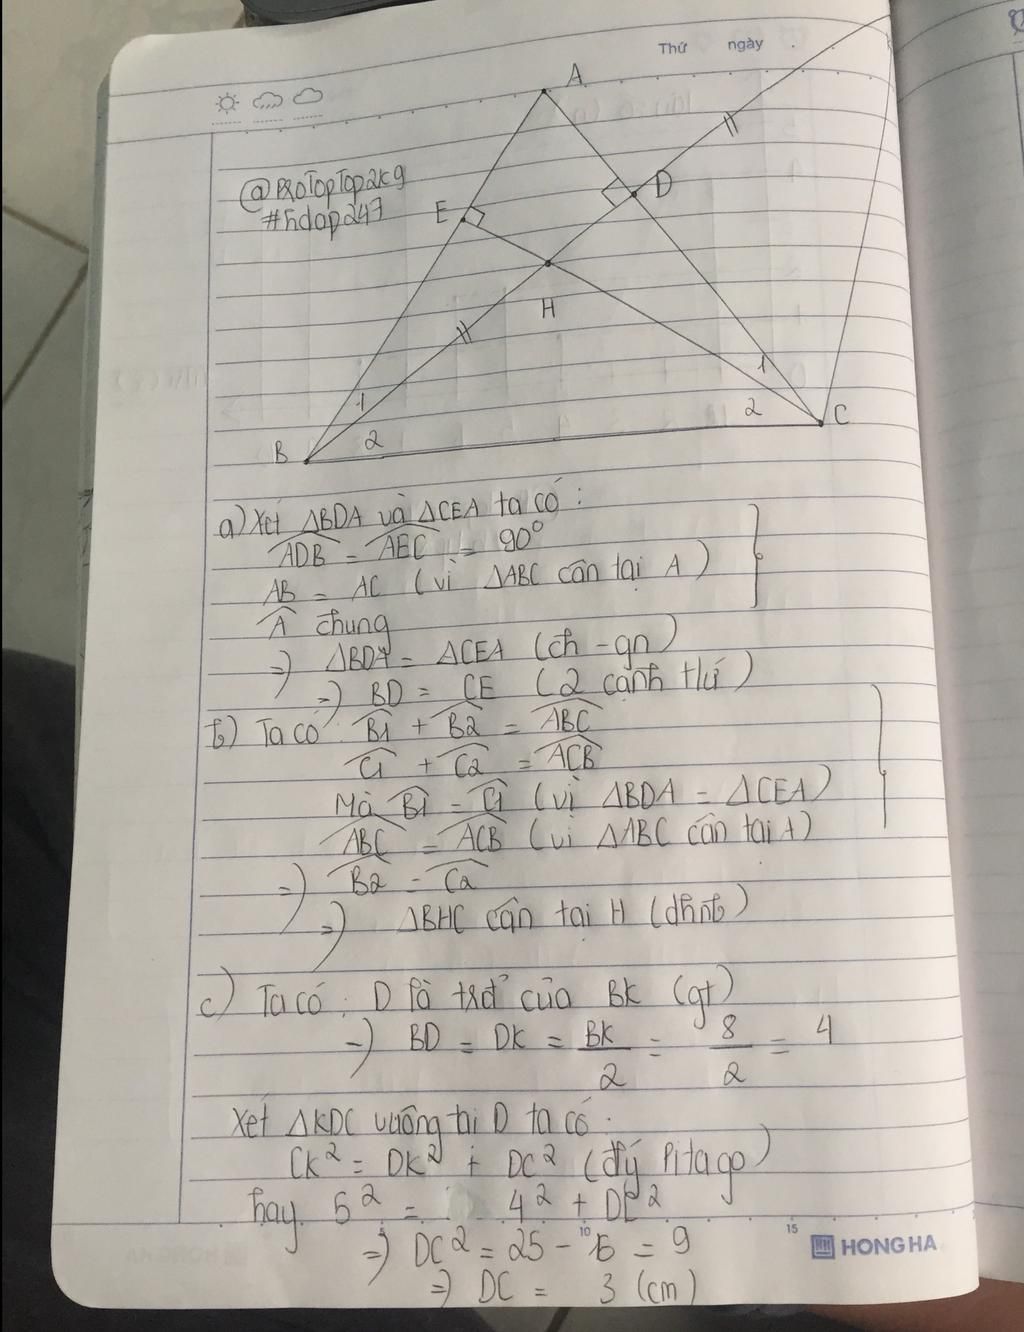 Thứ ngày
A
@ProTopTop2k9
#hdap247
E
D
H
1
1
2
2
B
C
a) Xét ΔBDA và ΔCEA ta có :
ADB = AEC = 90°
AB = AC (vì ΔABC cân tại A)
A chung
=) ΔBDA = ΔCEA (ch - gn)
=) BD = CE (2 cạnh tứ)
b) Ta có : B1 + B2 = ABC
C1 + C2 = ACB
Mà B1 = C1 (vì ΔBDA = ΔCEA)
ABC = ACB (vì ΔABC cân tại A)
=) B2 = C2
=) ΔBHC cân tại H (dhnb)
c) Ta có : D là trđ của BK (gt)
=) BD = DK = BK/2 = 8/2 = 4
Xét ΔKDC vuông tại D ta có :
CK² = DK² + DC² (đ.lý Pitago)
hay 5² = 4² + DC²
5 10 15
=) DC² = 25 - 16 = 9
HH HONG HA
=) DC = 3 (cm)